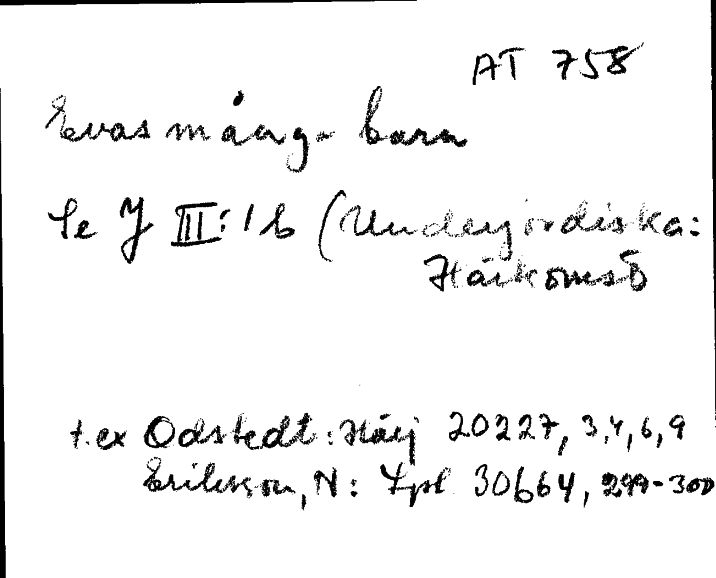 AT 758
Evas många barn
Se J III:1b (Underjordiska:
Härkomst)
t.ex Odstedt: Härj 20227, 3,4,6,9
Eriksson, N: Lpl 30664, 299-300